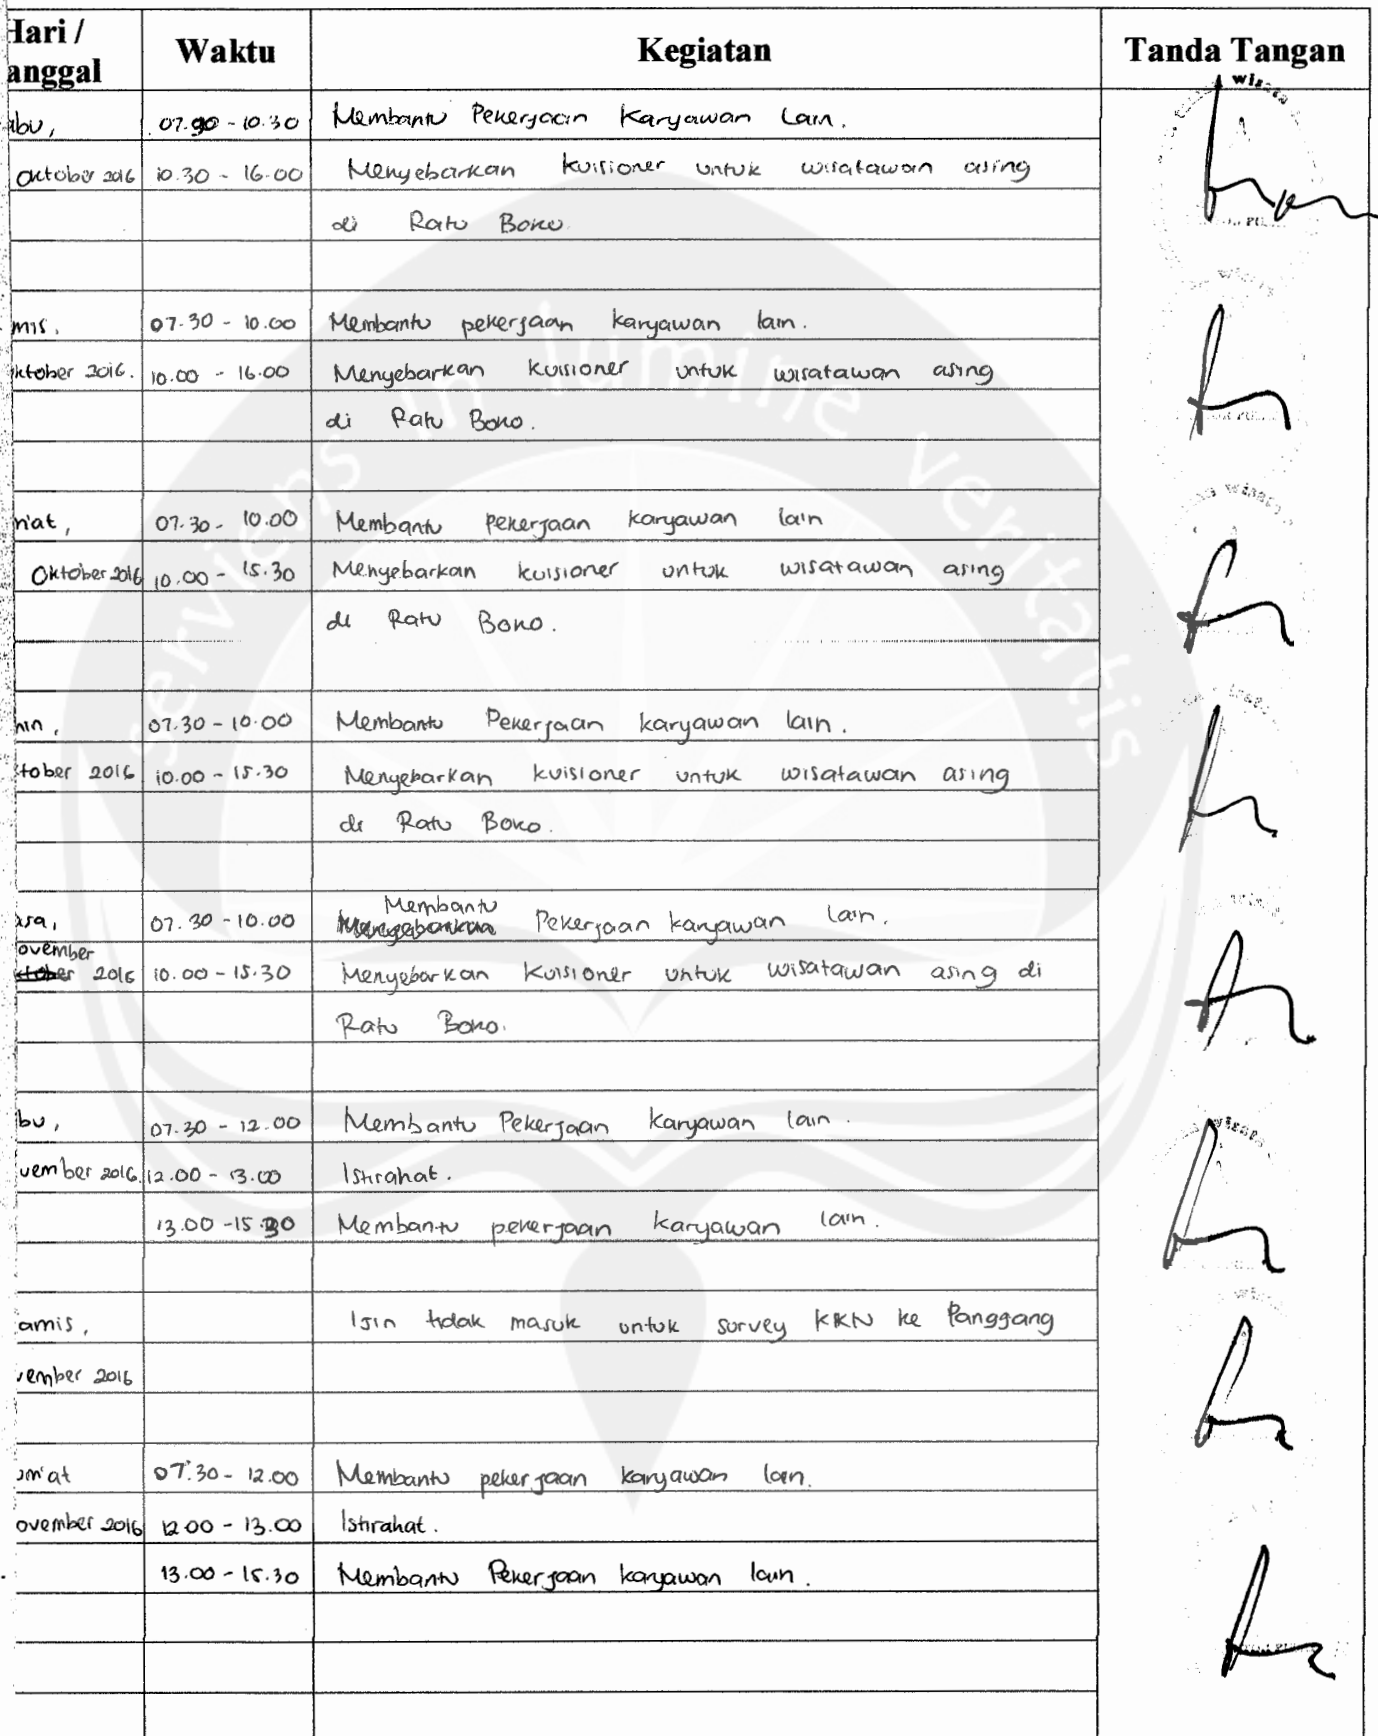 Hari / Waktu Kegiatan Tanda Tangan
anggal
abu, 07.30 - 10.30 Membantu Pekerjaan Karyawan Lain.
Oktober 2016 10.30 - 16.00 Menyebarkan kuisioner untuk wisatawan asing
di Ratu Boko.
mis, 07.30 - 10.00 Membantu pekerjaan karyawan lain.
ktober 2016. 10.00 - 16.00 Menyebarkan kuisioner untuk wisatawan asing
di Ratu Boko.
m'at, 07.30 - 10.00 Membantu pekerjaan karyawan lain
Oktober 2016 10.00 - 15.30 Menyebarkan kuisioner untuk wisatawan asing
di Ratu Boko.
nin, 07.30 - 10.00 Membantu Pekerjaan karyawan lain.
tober 2016 10.00 - 15.30 Menyebarkan kuisioner untuk wisatawan asing
di Ratu Boko.
asa, 07.30 - 10.00 Membantu Pekerjaan karyawan lain.
ovember
2016 10.00 - 15.30 Menyebarkan kuisioner untuk wisatawan asing di
Ratu Boko.
bu, 07.30 - 12.00 Membantu Pekerjaan karyawan lain.
vember 2016. 12.00 - 13.00 Istirahat.
13.00 - 15.30 Membantu pekerjaan karyawan lain.
amis, Ijin tidak masuk untuk survey KKN ke Panggang
vember 2016
um'at 07.30 - 12.00 Membantu pekerjaan karyawan lain.
ovember 2016 12.00 - 13.00 Istirahat.
13.00 - 15.30 Membantu Pekerjaan karyawan lain.
serviens in lumine veritatis